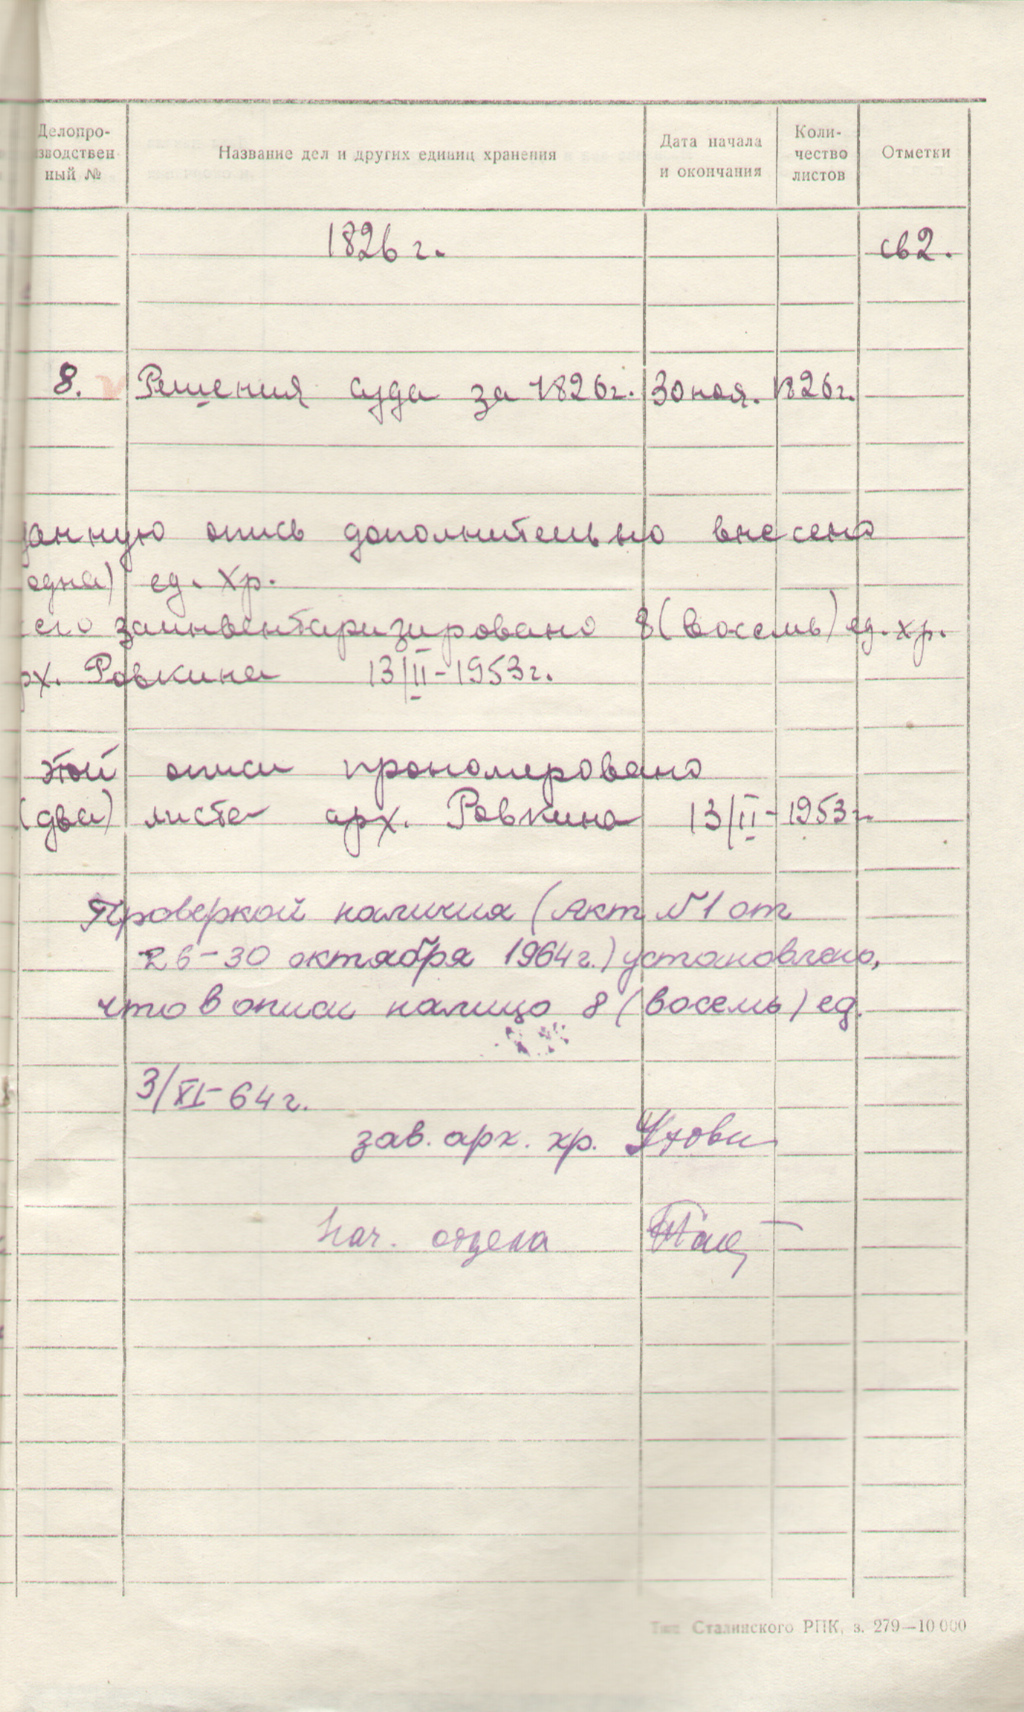 Делопро-
зводствен
ный №
Название дел и других единиц хранения
Дата начала
и окончания
Коли-
чество
листов
Отметки
1826 г. св2.
8. Решения суда за 1826г. 30 ноя. 1826г.
данную опись дополнительно внесено
одна) ед. хр.
его заинвентаризировано 8 (восемь) ед. хр.
рх. Ровкина 13/II-1953г.
этой описи прономеровано
(два) листа арх. Ровкина 13/II-1953г.
Проверкой наличия (акт №1 от
26-30 октября 1964г.) установлено,
что в описи налицо 8 (восемь) ед.
3/XI-64г.
зав. арх. хр.
Нач. отдела
Тип Сталинского РПК, з. 279—10 000